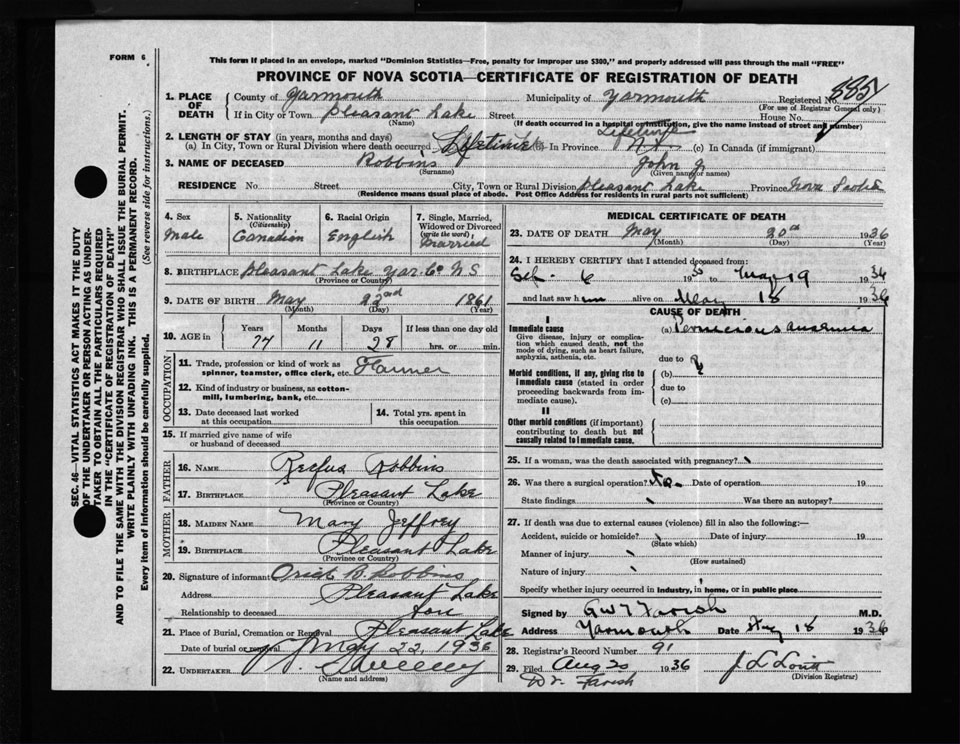 FORM 6
This form if placed in an envelope, marked "Dominion Statistics—Free, penalty for improper use $300," and properly addressed will pass through the mail "FREE"
PROVINCE OF NOVA SCOTIA—CERTIFICATE OF REGISTRATION OF DEATH
1. PLACE OF DEATH County of Yarmouth Municipality of Yarmouth Registered No.
(For use of Registrar General only)
If in City or Town Pleasant Lake Street House No.
(Name) (If death occurred in a hospital or institution, give the name instead of street and number)
2. LENGTH OF STAY (in years, months and days) Lifetime
(a) In City, Town or Rural Division where death occurred Lifetime (b) In Province N.S. (c) In Canada (if immigrant)
3. NAME OF DECEASED Robbins John J
(Surname) (Given name or names)
RESIDENCE No Street City, Town or Rural Division Pleasant Lake Province Nova Scotia
(Residence means usual place of abode. Post Office Address for residents in rural parts not sufficient)
4. Sex Male
5. Nationality (Citizenship) Canadian
6. Racial Origin English
7. Single, Married, Widowed or Divorced (write the word) Married
8. BIRTHPLACE Pleasant Lake Yar. Co N S
(Province or Country)
9. DATE OF BIRTH May 22nd 1861
(Month) (Day) (Year)
10. AGE in Years Months Days If less than one day old
74 11 28 hrs. or min.
OCCUPATION
11. Trade, profession or kind of work as spinner, teamster, office clerk, etc. Farmer
12. Kind of industry or business, as cotton-mill, lumbering, bank, etc.
13. Date deceased last worked at this occupation
14. Total yrs. spent in this occupation
15. If married give name of wife or husband of deceased
FATHER
16. NAME Rufus Robbins
17. BIRTHPLACE Pleasant Lake
(Province or Country)
MOTHER
18. MAIDEN NAME Mary Jeffrey
19. BIRTHPLACE Pleasant Lake
(Province or Country)
20. Signature of informant B Robbins
Address Pleasant Lake
Relationship to deceased Son
21. Place of Burial, Cremation or Removal Pleasant Lake
Date of burial or removal May 22, 1936
22. UNDERTAKER
(Name and address)
MEDICAL CERTIFICATE OF DEATH
23. DATE OF DEATH May 20th 1936
(Month) (Day)
24. I HEREBY CERTIFY that I attended deceased from:
6 19 May 19 1936
and last saw him alive on May 18 1936
CAUSE OF DEATH
I
Immediate cause (a) Pernicious anaemia
Give disease, injury or complication which caused death, not the mode of dying, such as heart failure, asphyxia, asthenia, etc.
due to
Morbid conditions, if any, giving rise to immediate cause (stated in order proceeding backwards from immediate cause). (b)
due to
(c)
II
Other morbid conditions (if important) contributing to death but not causally related to immediate cause.
25. If a woman, was the death associated with pregnancy?
26. Was there a surgical operation? No Date of operation 19
State findings Was there an autopsy?
27. If death was due to external causes (violence) fill in also the following:—
Accident, suicide or homicide? Date of injury 19
(State which)
Manner of injury
(How sustained)
Nature of injury
Specify whether injury occurred in industry, in home, or in public place
Signed by G W T Farish M.D.
Address Yarmouth Date Aug 18 1936
28. Registrar's Record Number 91
29. Filed Aug 20 1936 J L Lovitt
(Division Registrar)
Dr. Farish
SEC. 46—VITAL STATISTICS ACT MAKES IT THE DUTY
OF THE UNDERTAKER OR PERSON ACTING AS UNDER-
TAKER TO OBTAIN ALL THE PARTICULARS REQUIRED
IN THE "CERTIFICATE OF REGISTRATION OF DEATH"
AND TO FILE THE SAME WITH THE DIVISION REGISTRAR WHO SHALL ISSUE THE BURIAL PERMIT.
WRITE PLAINLY WITH UNFADING INK. THIS IS A PERMANENT RECORD.
Every item of information should be carefully supplied. (See reverse side for instructions.)